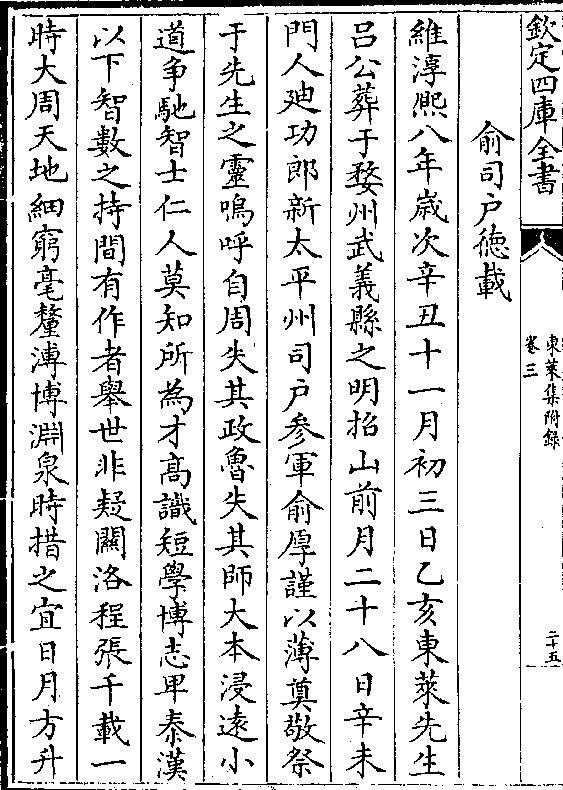 欽定四庫全書
東萊集附錄
卷三
二十五
俞司户徳載
維淳熈八年歳次辛丑十一月初三日乙亥東萊先生
吕公葬于婺州武義縣之明招山前月二十八日辛未
門人廸功郎新太平州司户參軍俞厚謹以薄奠敬祭
于先生之靈嗚呼自周失其政魯失其師大本浸逺小
道争馳智士仁人莫知所為才髙識短學博志卑秦漢
以下智數之持間有作者舉世非疑闗洛程張千載一
時大周天地細窮毫釐溥博淵泉時措之宜日月方升